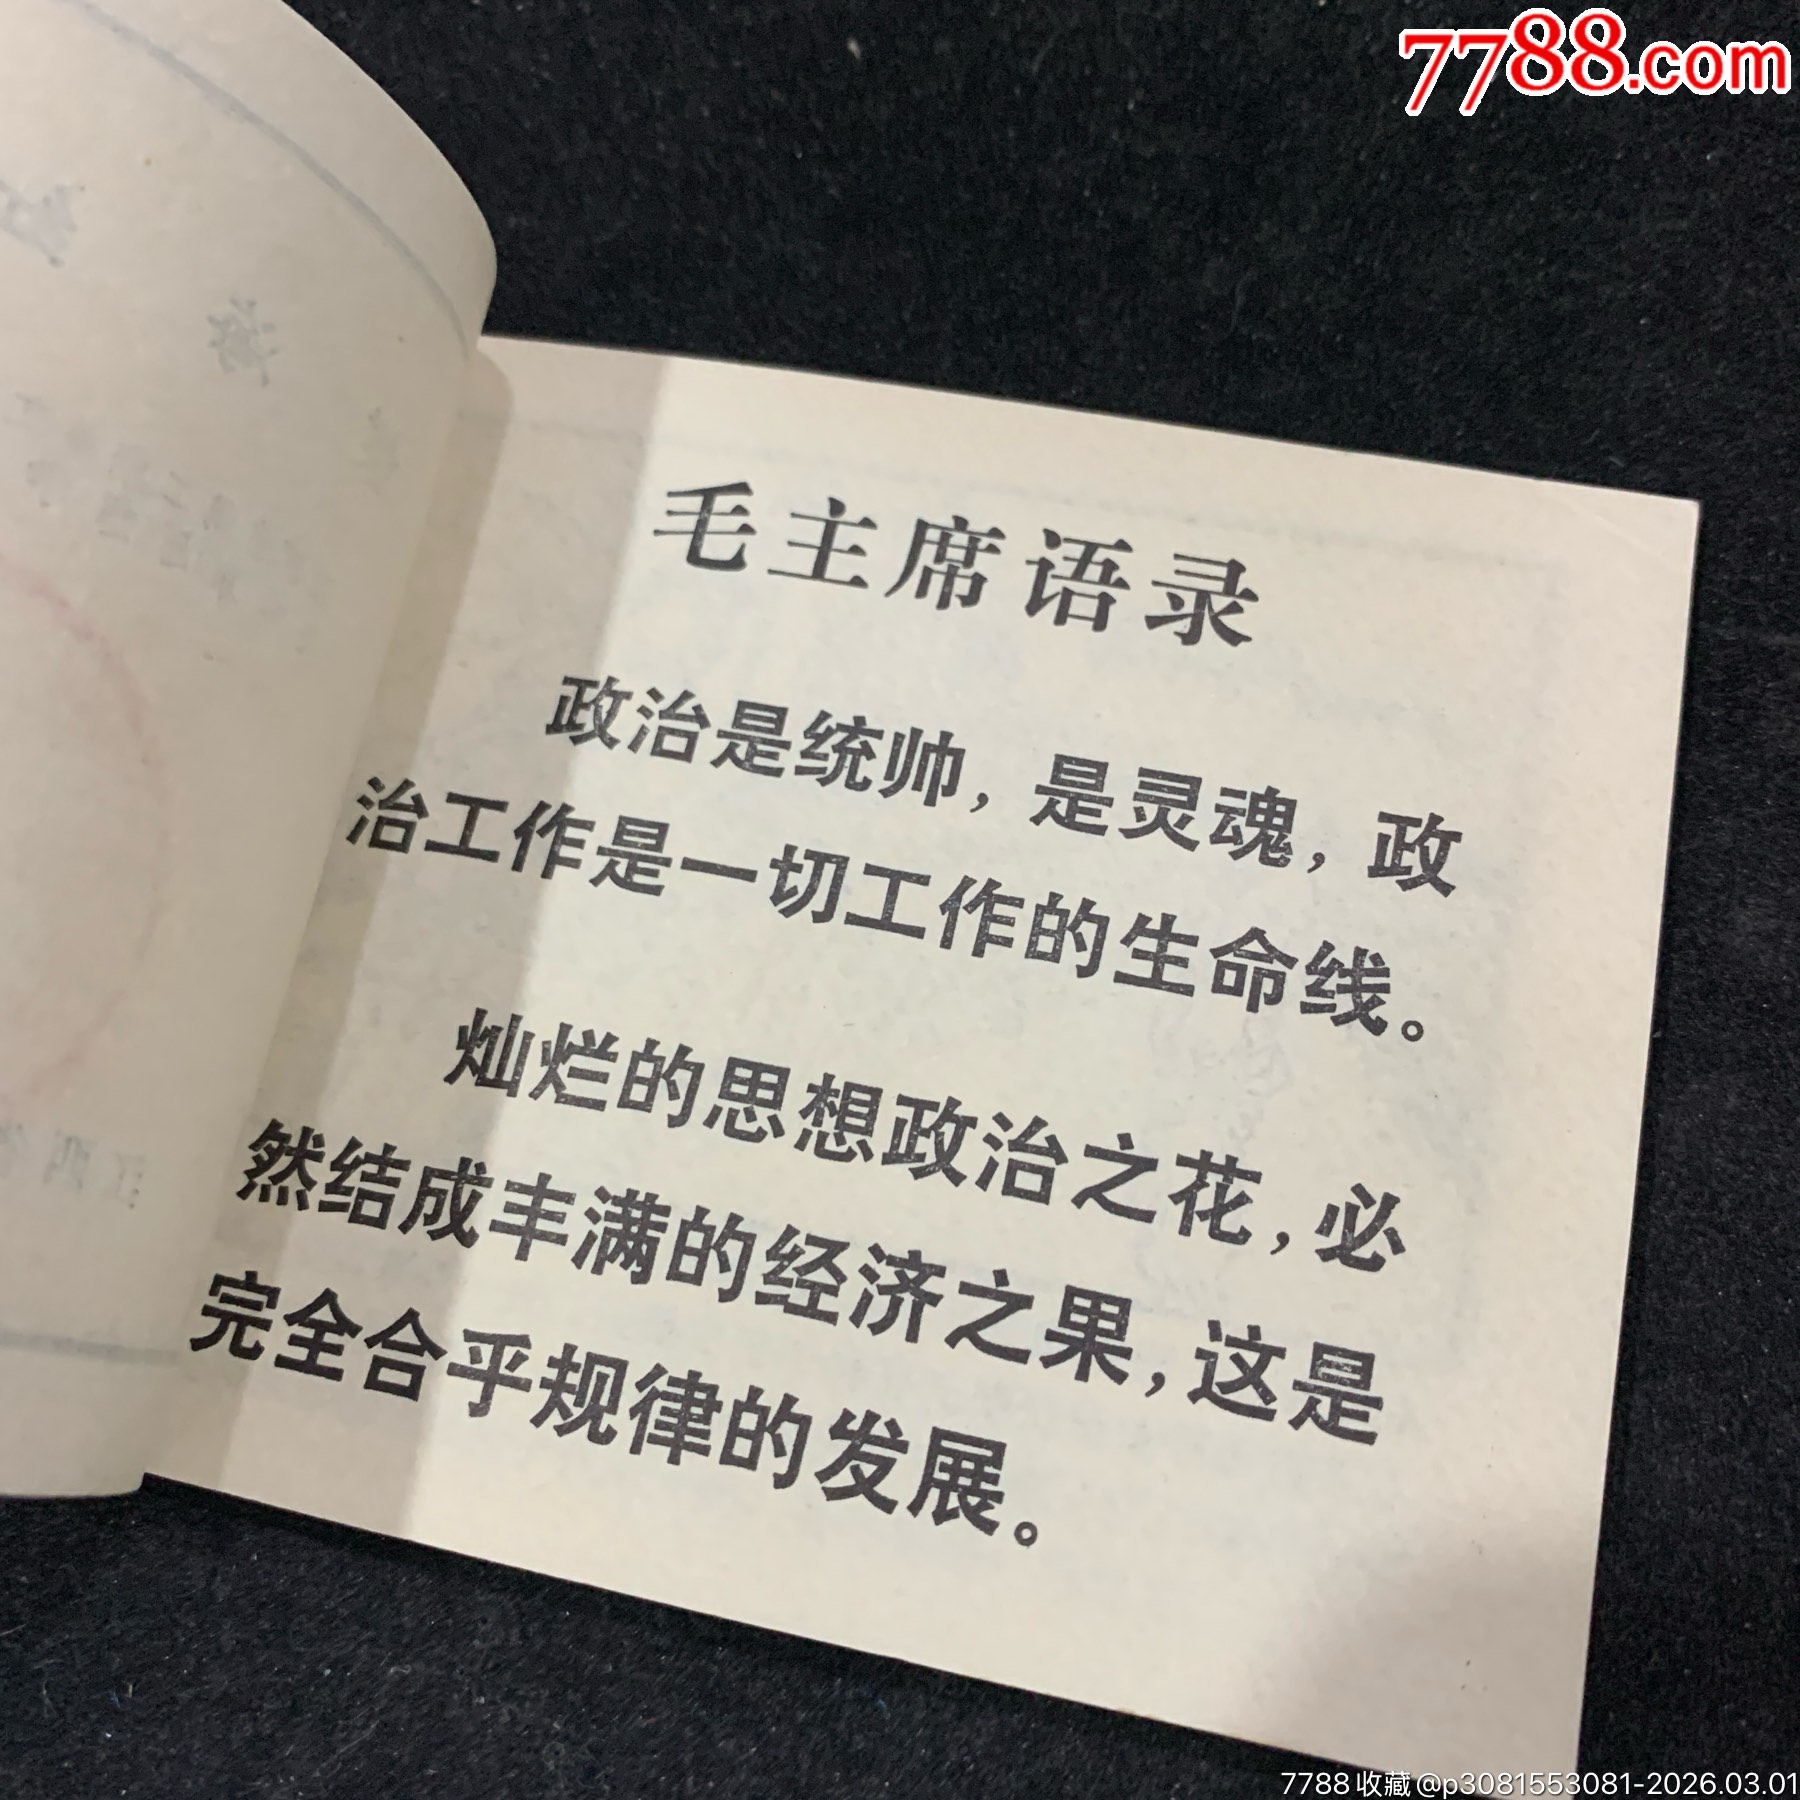 7788.com
毛主席语录
政治是统帅，是灵魂，政
治工作是一切工作的生命线。
灿烂的思想政治之花，必
然结成丰满的经济之果，这是
完全合乎规律的发展。
7788收藏@p3081553081-2026.03.01